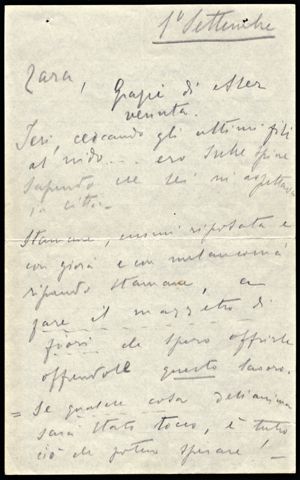 1° Settembre
Cara,
Grazie di esser
venuta.
Ieri, cercando gli ultimi fili
al nido.... ero
sapendo che lei mi aspettava
in città.
Stamane, riposata e
con gioia e con melanconia
stamane, a
fare il mazzetto di
fiori che spero offrirle
offendole questo lavoro.
= Se qualche cosa dell'anima
sarà stato tocco, è tutto
ciò che potevo sperare! —